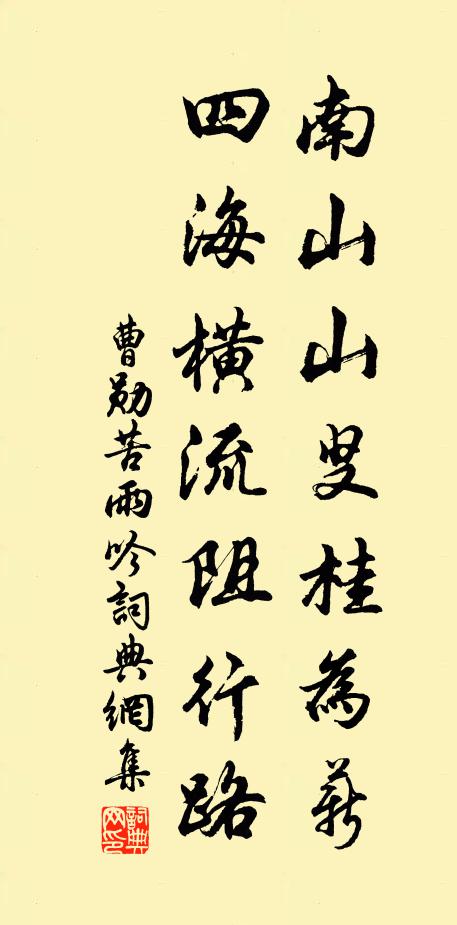 南山山叟桂為薪
四海橫流阻行路
曹勛苦雨吟詞典網集
詞典網印